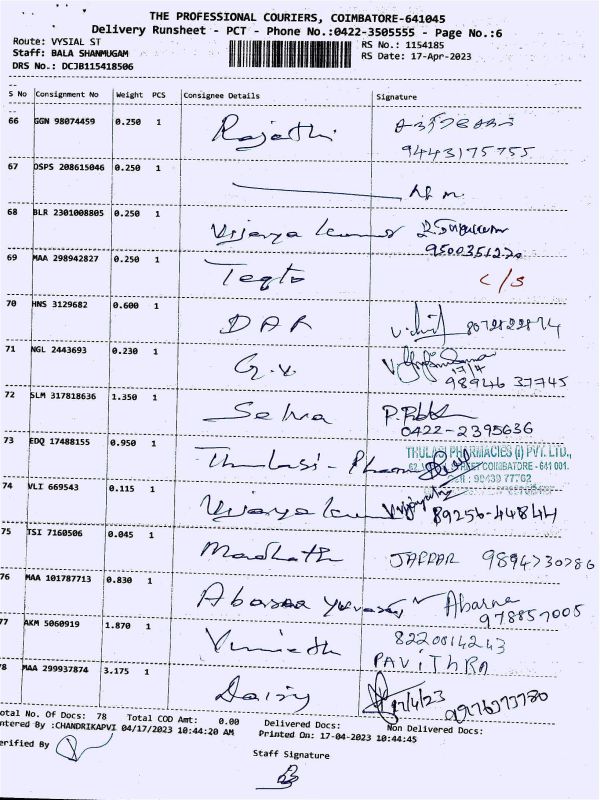 THE PROFESSIONAL COURIERS, COIMBATORE-641045
Delivery Runsheet - PCT - Phone No.:0422-3505555 - Page No.:6
Route: VYSIAL ST
Staff: BALA SHANMUGAM
DRS No.: DCJB115418506
RS No.: 1154185
RS Date: 17-Apr-2023
S No Consignment No Weight PCS Consignee Details Signature
66 GGN 98074459 0.250 1 Rajarthi
9443175755
67 OSPS 208615046 0.250 1
68 BLR 2301008805 0.250 1 Vijaya Kumar
9500351220
69 MAA 298942827 0.250 1 Teqto c/s
70 HNS 3129682 0.600 1 DAR
71 NGL 2443693 0.230 1 G.V.
17/4
98946 37745
72 SLM 317818636 1.350 1 Selva
0422-2395636
73 EDQ 17488155 0.950 1 Thulasi - Pharma
THULASI PHARMACIES (I) PVT. LTD.,
COIMBATORE - 641 001.
74 VLI 669543 0.115 1 Vijaya Kumar 89256-44844
75 TSI 7160506 0.045 1 Madhath JAFFAR 9894730786
76 MAA 101787713 0.830 1 Abarna Abarna
978857005
77 AKM 5060919 1.870 1 Vinieth 8220014243
PAVITHRA
78 MAA 299937874 3.175 1 Daisy 17/4/23
Total No. Of Docs: 78 Total COD Amt: 0.00 Delivered Docs: Non Delivered Docs:
Entered By :CHANDRIKAPVI 04/17/2023 10:44:20 AM Printed On: 17-04-2023 10:44:45
Verified By
Staff Signature